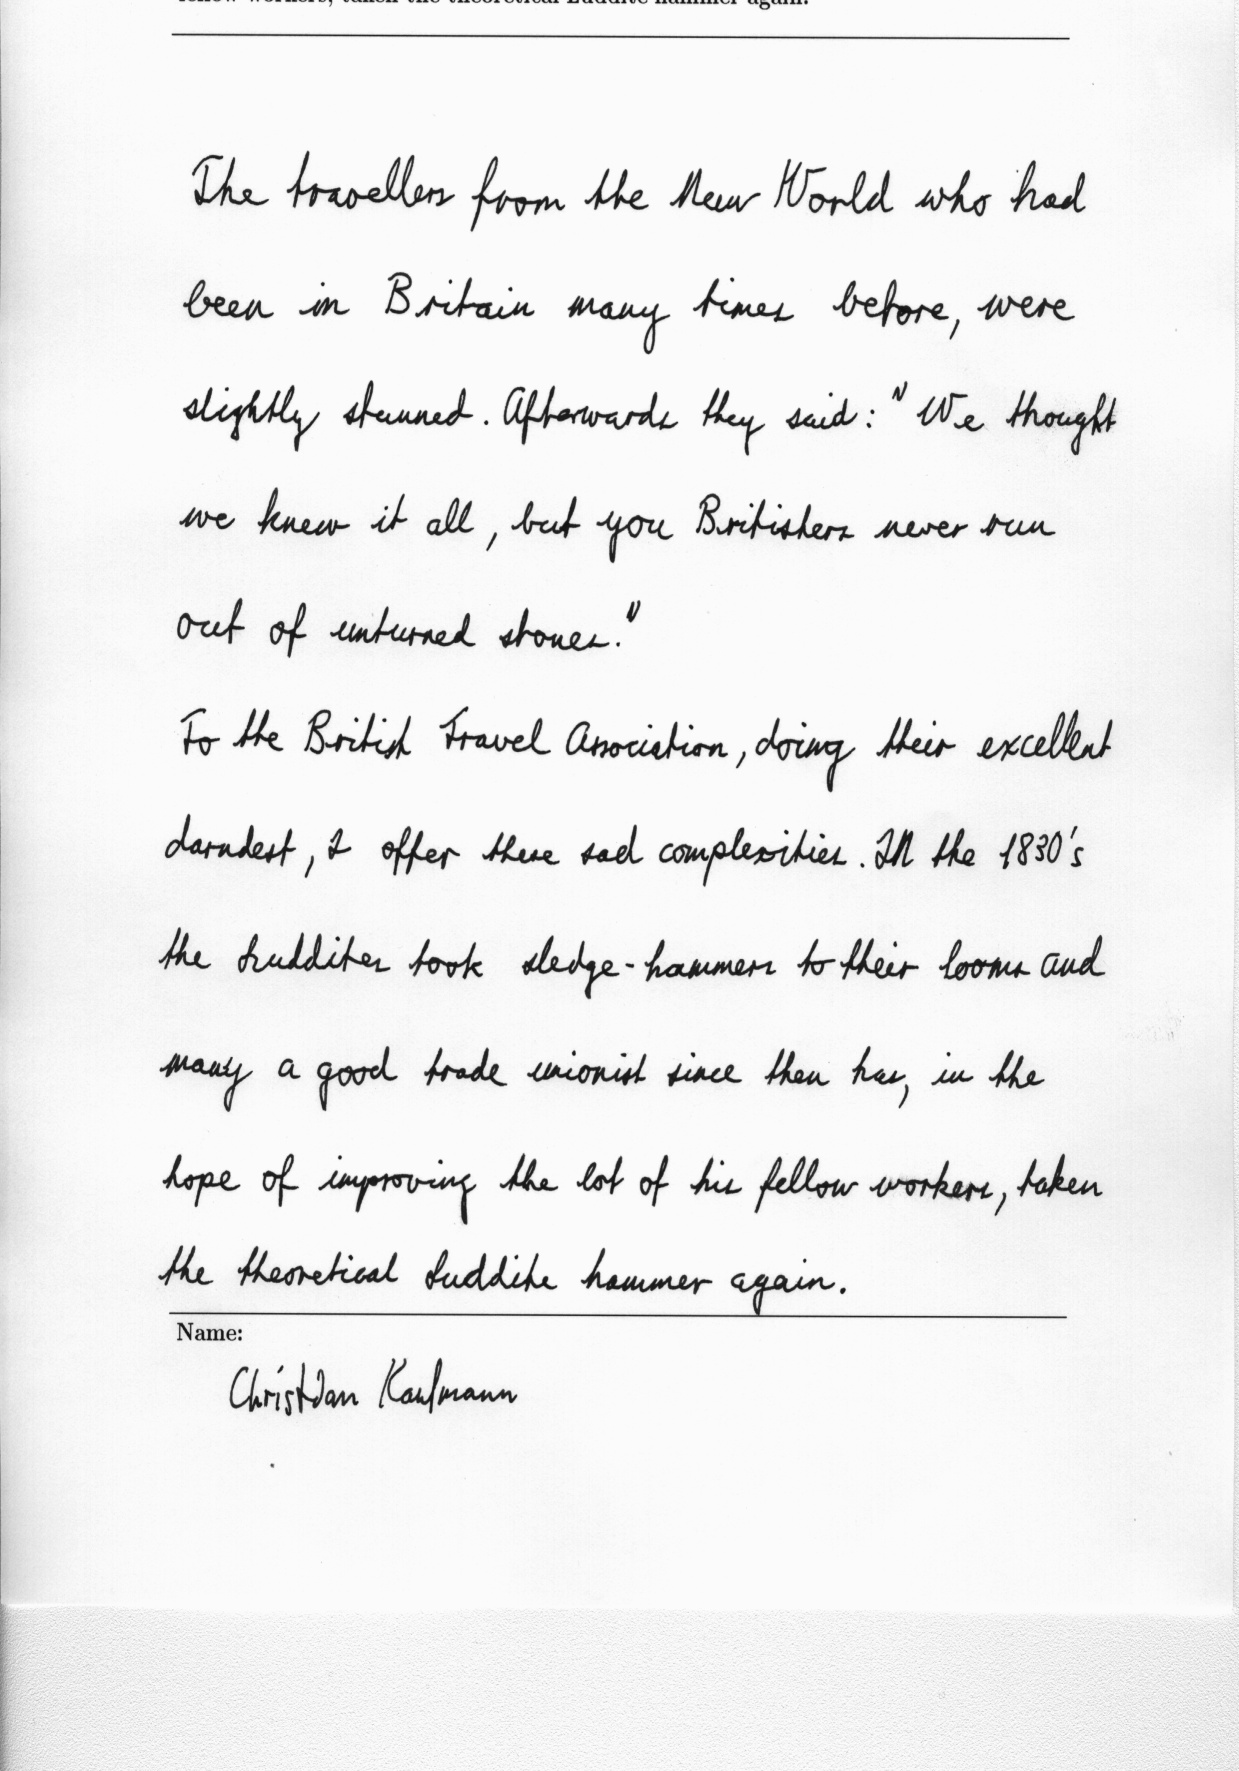 fellow workers, taken the theoretical Luddite hammer again.
The travellers from the New World who had
been in Britain many times before, were
slightly stunned. Afterwards they said: "We thought
we knew it all, but you Britishers never run
out of unturned stones."
To the British Travel Association, doing their excellent
darndest, I offer these sad complexities. IN the 1830's
the Luddites took sledge-hammers to their looms and
many a good trade unionist since then has, in the
hope of improving the lot of his fellow workers, taken
the theoretical Luddite hammer again.
Name:
Christian Kaufmann